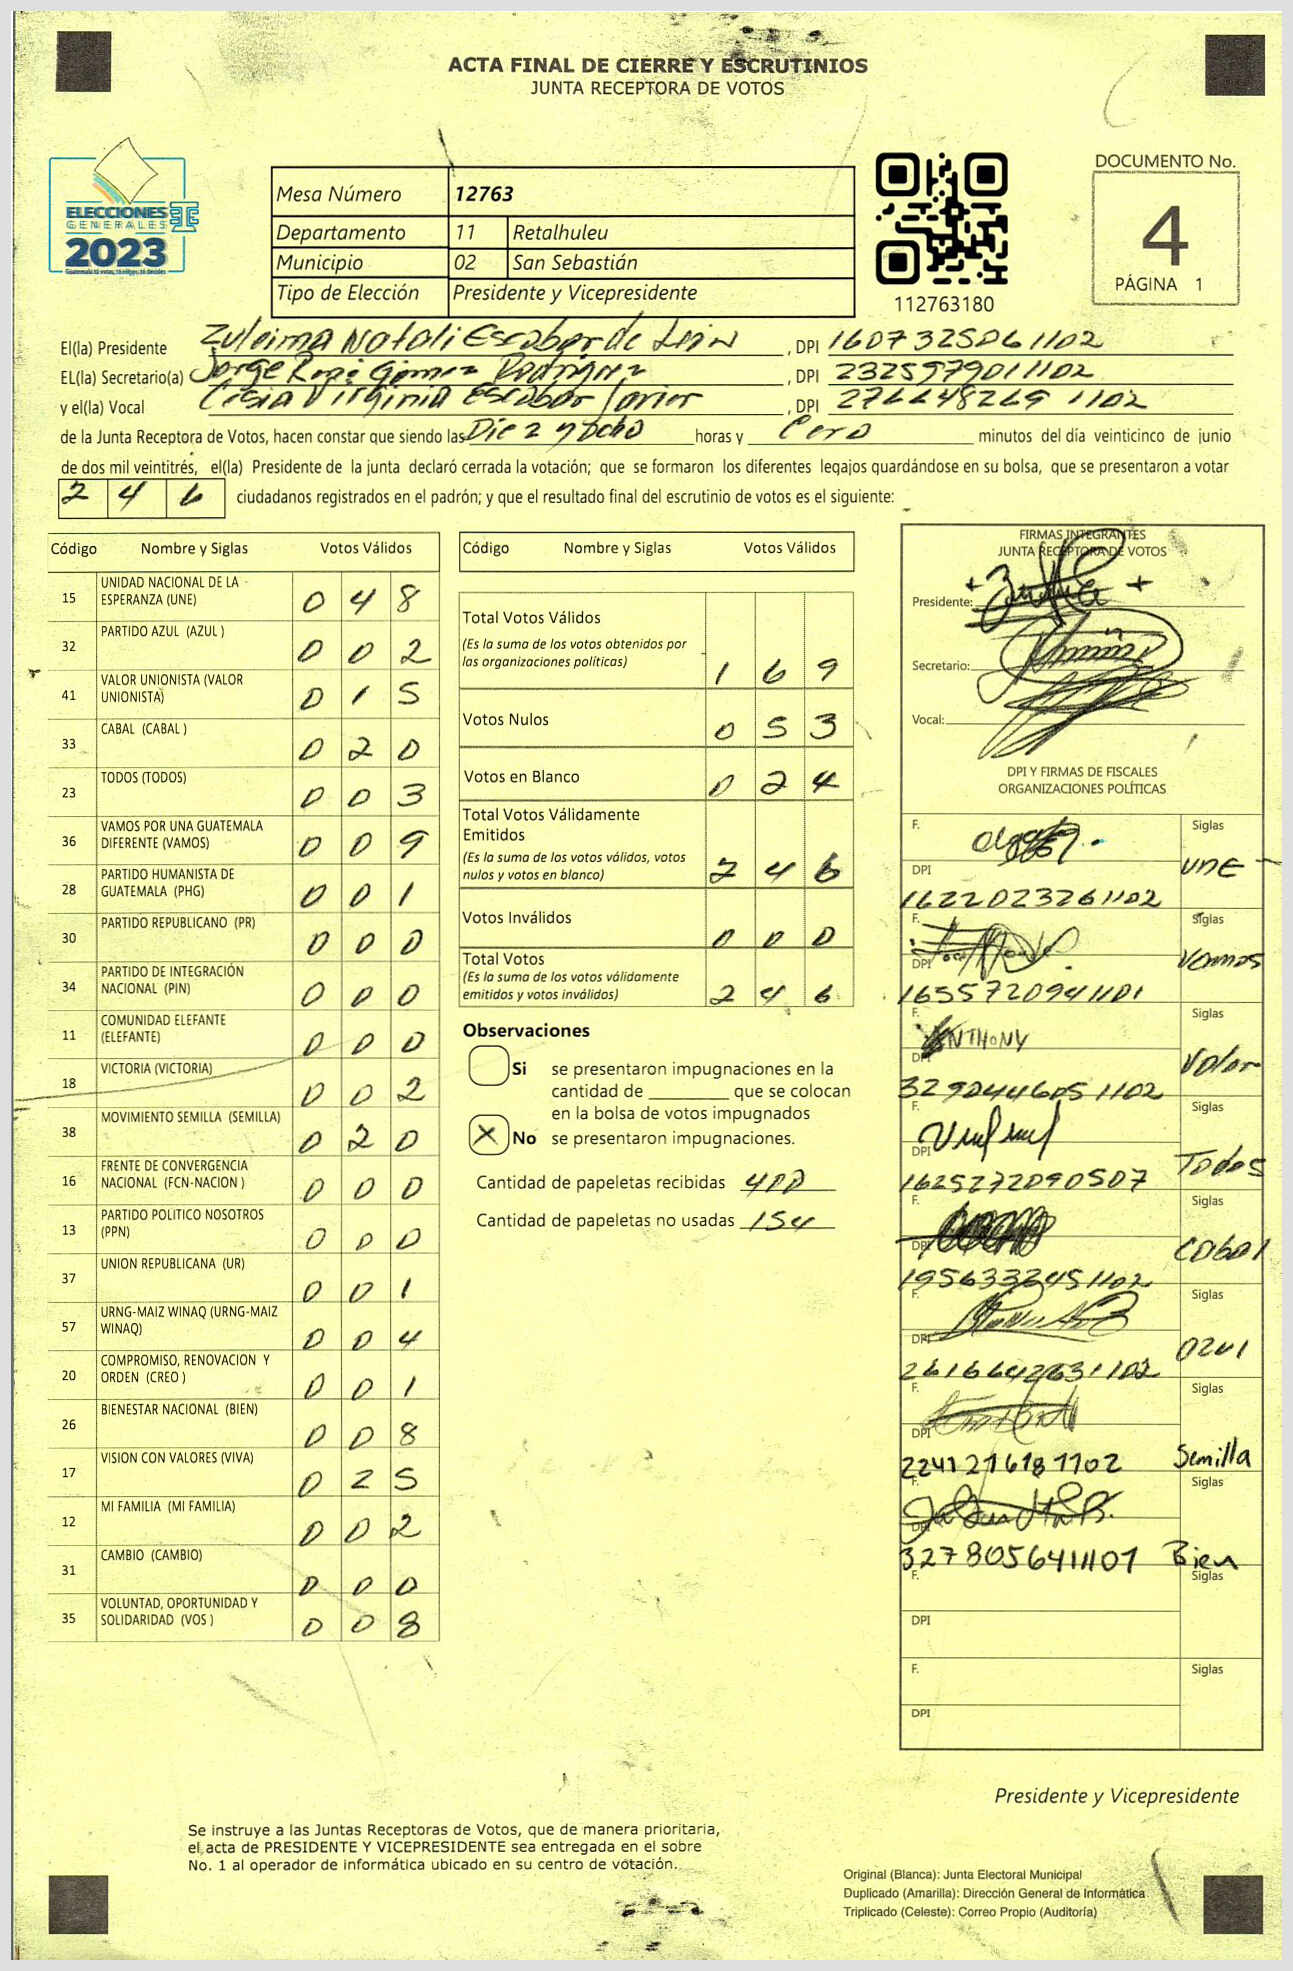 ACTA FINAL DE CIERRE Y ESCRUTINIOS
JUNTA RECEPTORA DE VOTOS
ELECCIONES
GENERALES
2023
Mesa Número 12763
Departamento 11 Retalhuleu
Municipio 02 San Sebastián
Tipo de Elección Presidente y Vicepresidente
112763180
DOCUMENTO No.
4
PÁGINA 1
El(la) Presidente Zuleima Natali Escobar de León , DPI 1607325061102
EL(la) Secretario(a) Jorge René Gómez Rodríguez , DPI 2325979011102
y el(la) Vocal Virginia Escobar Javier , DPI 2766482691102
de la Junta Receptora de Votos, hacen constar que siendo las Diez y ocho horas y Cero minutos del día veinticinco de junio
de dos mil veintitrés, el(la) Presidente de la junta declaró cerrada la votación; que se formaron los diferentes legajos quardándose en su bolsa, que se presentaron a votar
2 4 6 ciudadanos registrados en el padrón; y que el resultado final del escrutinio de votos es el siguiente:
Código Nombre y Siglas Votos Válidos
15 UNIDAD NACIONAL DE LA ESPERANZA (UNE) 0 4 8
32 PARTIDO AZUL (AZUL ) 0 0 2
41 VALOR UNIONISTA (VALOR UNIONISTA) 0 1 5
33 CABAL (CABAL ) 0 2 0
23 TODOS (TODOS) 0 0 3
36 VAMOS POR UNA GUATEMALA DIFERENTE (VAMOS) 0 0 9
28 PARTIDO HUMANISTA DE GUATEMALA (PHG) 0 0 1
30 PARTIDO REPUBLICANO (PR) 0 0 0
34 PARTIDO DE INTEGRACIÓN NACIONAL (PIN) 0 0 0
11 COMUNIDAD ELEFANTE (ELEFANTE) 0 0 0
18 VICTORIA (VICTORIA) 0 0 2
38 MOVIMIENTO SEMILLA (SEMILLA) 0 2 0
16 FRENTE DE CONVERGENCIA NACIONAL (FCN-NACION ) 0 0 0
13 PARTIDO POLITICO NOSOTROS (PPN) 0 0 0
37 UNION REPUBLICANA (UR) 0 0 1
57 URNG-MAIZ WINAQ (URNG-MAIZ WINAQ) 0 0 4
20 COMPROMISO, RENOVACION Y ORDEN (CREO ) 0 0 1
26 BIENESTAR NACIONAL (BIEN) 0 0 8
17 VISION CON VALORES (VIVA) 0 2 5
12 MI FAMILIA (MI FAMILIA) 0 0 2
31 CAMBIO (CAMBIO) 0 0 0
35 VOLUNTAD, OPORTUNIDAD Y SOLIDARIDAD (VOS ) 0 0 8
Código Nombre y Siglas Votos Válidos
Total Votos Válidos
(Es la suma de los votos obtenidos por
las organizaciones políticas) 1 6 9
Votos Nulos 0 5 3
Votos en Blanco 0 2 4
Total Votos Válidamente
Emitidos
(Es la suma de los votos válidos, votos
nulos y votos en blanco) 2 4 6
Votos Inválidos 0 0 0
Total Votos
(Es la suma de los votos válidamente
emitidos y votos inválidos) 2 4 6
Observaciones
Si se presentaron impugnaciones en la
cantidad de ________ que se colocan
en la bolsa de votos impugnados
X No se presentaron impugnaciones.
Cantidad de papeletas recibidas 400
Cantidad de papeletas no usadas 154
FIRMAS INTEGRANTES
JUNTA RECEPTORA DE VOTOS
Presidente:
Secretario:
Vocal:
DPI Y FIRMAS DE FISCALES
ORGANIZACIONES POLÍTICAS
F. Siglas
DPI UNE
1622023261102
F. Siglas
DPI Vamos
1655720941101
F. Siglas
ANTHONY
DPI Valor
3290446051102
F. Siglas
DPI Todos
1625272090507
F. Siglas
DPI Cabal
1956333451102
F. Siglas
DPI Azul
2616642631102
F. Siglas
DPI Semilla
2241216181102
F. Siglas
DPI
3278056411101 Bien
F. Siglas
DPI
F. Siglas
DPI
Presidente y Vicepresidente
Se instruye a las Juntas Receptoras de Votos, que de manera prioritaria,
el acta de PRESIDENTE Y VICEPRESIDENTE sea entregada en el sobre
No. 1 al operador de informática ubicado en su centro de votación.
Original (Blanca): Junta Electoral Municipal
Duplicado (Amarilla): Dirección General de Informática
Triplicado (Celeste): Correo Propio (Auditoría)